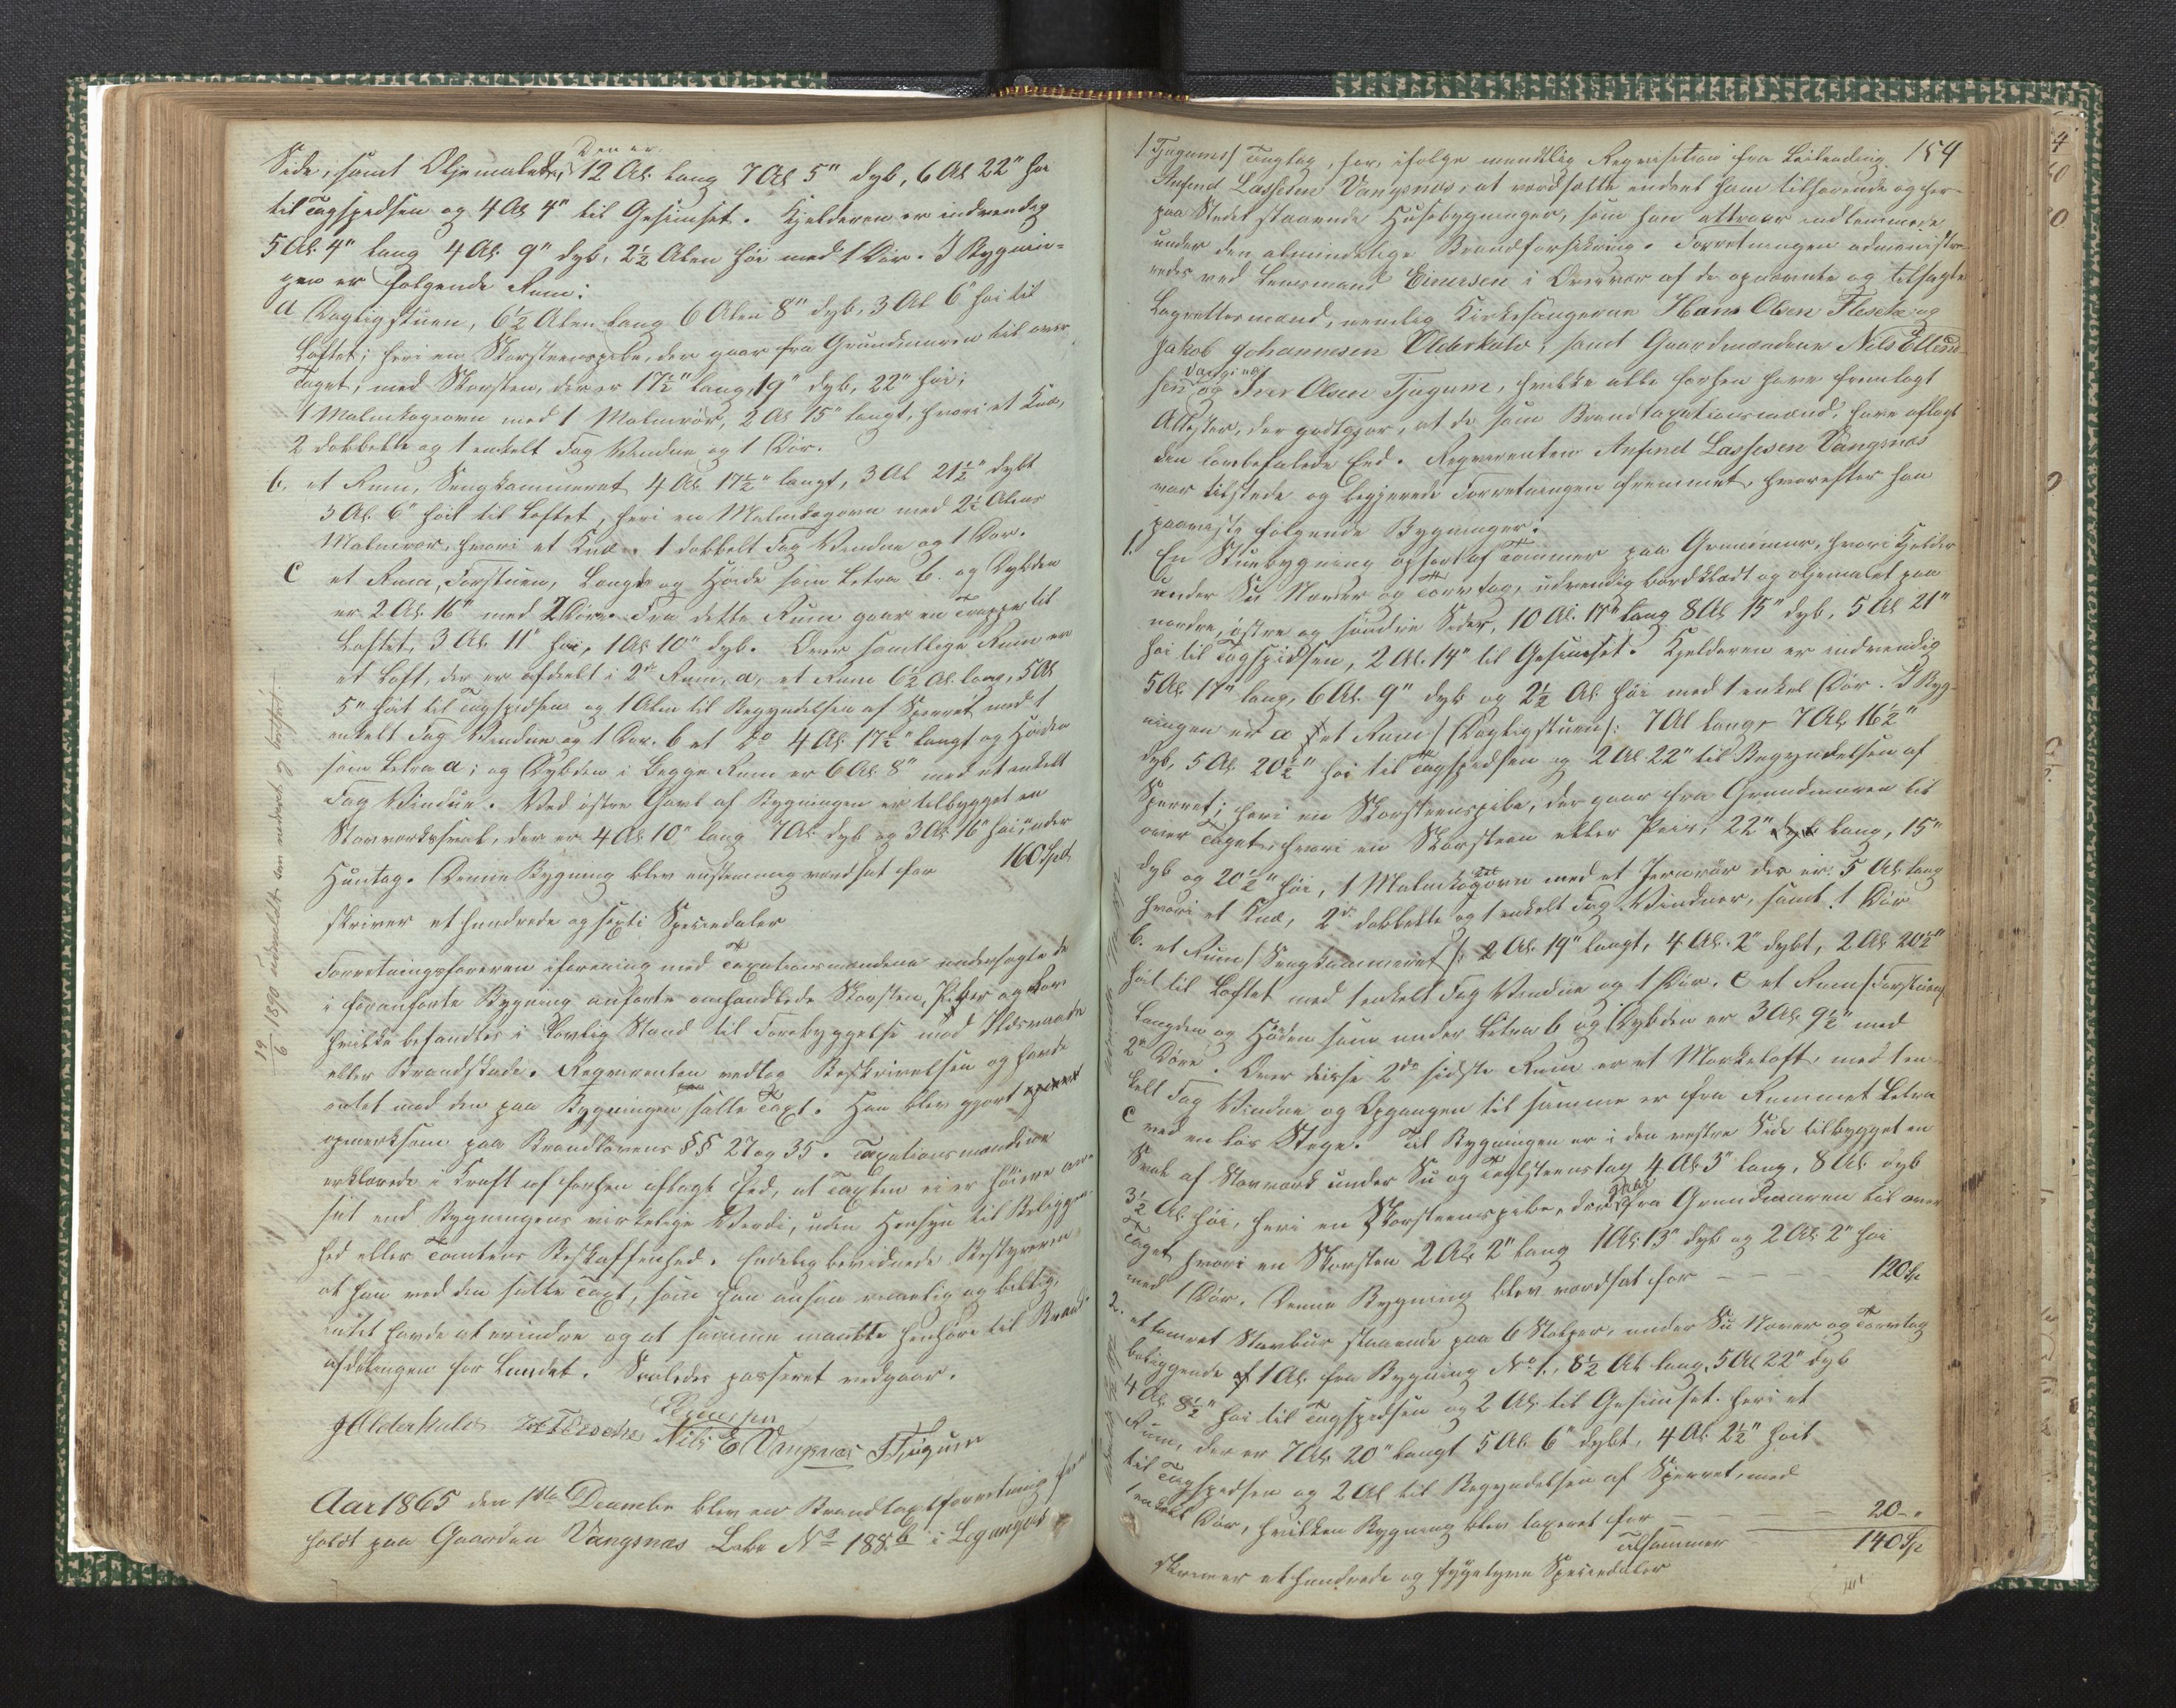 Den er
Side, samt Oljemalede, 12 Al. lang 7 Al 5" dyb, 6 Al 22" høi
til Tagspidsen og 4 Al 4" til Gesimset. Kjelderen er indvendig
5 Al. 4" lang 4 Al 9" dyb, 2½ Alen høi med 1 Dør. I Bygnin-
gen er følgende Rum:
a Dagligstuen, 6½ Alen lang 6 Alen 8" dyb, 3 Al 6" høi til
Loftet; heri en Skorsteenspibe, der gaar fra Grundmuren til over
Taget, med Skorsten, der er 17½" lang, 19" dyb, 22" høi;
1 Malmkogeovn med 1 Malmrør, 2 Al 15" langt, hvori et Knæ,
2 dobbelte og 1 enkelt Fag Vindue og 1 Dør.
b. et Rum, Sengkammeret 4 Al. 17½" langt, 3 Al 21½" dybt
3 Al. 6" høit til Loftet, heri en Malmkogovn med 2½ Alens
Malmrør, hvori et Knæ. 1 dobbelt Fag Vindue og 1 Dør.
c et Rum, Forstuen, Længde og Høide som Letra b. og Dybden
er 2 Al. 16" med 2 Døre. Fra dette Rum gaar en Trappe til
Loftet, 3 Al. 11" høi, 1 Al 10" dyb. Over samtlige Rum er
et Loft, der er afdeelt i 2de Rum, a, et Rum 6½ Al. lang, 5 Al
5" høit til Tagspidsen og 1 Alen til Begyndelsen af Sperret med 1
enkelt Fag Vindue og 1 Dør. b et Do 4 Al. 17½" langt og Høiden
som Letra a; og Dybden i begge Rum er 6 Al. 8" med et enkelt
Fag Vindue. Ved østre Gavl af Bygningen er tilbygget en
Stavværkssval, der er 4 Al. 10" lang 7 Al. dyb og 3 Al. 16" høi, under
Huntag. Denne Bygning blev enstemmig værdsat for 160 Spd
skriver et hundrede og sexti Speciedaler
Forretningsføreren iforening med Taxationsmændene undersøgte de
i foranførte Bygning anførte omhandlede Skorsten, Piber og Rør
hvilke befandtes i lovlig Stand til Forebyggelse mod Ildsvaade
eller Brandskade. Reqvirenten vedtog Beskrivelsen og havde
intet mod den paa Bygningen satte Taxt. Han blev gjort
opmerksom paa Brandlovens §§ 27 og 35. Taxationsmændene
erklærede i Kraft af forhen aflagt Eed, at Taxten ei er høiere an-
sat end Bygningens virkelige Værdi, uden Hensyn til Beliggen-
hed eller Tomtens Beskaffenhed. Endelig bevidnede Bestyreren
at han mod den satte Taxt, som han ansaa rimelig og billig,
intet havde at erindre og at samme maatte henføre til Brand-
afdelingen for Landet. Saaledes passeret vedgaar.
Einersen
J Olderkulv H O Flesche Nils E Vangsnæs I Tjugum
Aar 1865 den 1ste December blev en Brandtaxtforretning frem
holdt paa Gaarden Vangsnæs Løbe No 188 b i Leganger
19/6 1890 udmeldt som nedrevet og bortført
154
/Tjugums/ Tinglag, for, ifølge mundtlig Reqvisition fra Leilending
Anfind Lassesen Vangsnæs, at værdsætte endeel ham tilhørende og her-
paa Stedet staaende Husebygninger, som han attraar indlemmede
under den almindelige Brandforsikring. Forretningen administre-
redes ved Lensmand Einersen i Overvær af de opnævnte og tilsagte
Lagrettesmænd, nemlig Kirkesangerne Hans Olsen Flesche og
Jakob Johannesen Olderkulv, samt Gaardmændene Nils Ellend-
Vangsnæs
sen og Iver Olsen Tjugum, hvilke alle forhen have fremlagt
Attester, der godtgjør, at de som Brandtaxationsmænd, have aflagt
den lovbefalede Eed. Reqvirenten Anfind Lassesen Vangsnæs
var tilstede og begjerede Forretningen fremmet, hvorefter han
paaviste følgende Bygninger:
1. En Stuebygning opført af Tømmer paa Grundmur, hvori Kjelder
under Su Næver og Torvtag, udvendig bordklædt og oljemalet paa
nordre, østre og søndre Sider, 10 Al. 15" lang 8 Al 15" dyb, 5 Al 21"
høi til Tagspidsen, 2 Al. 14" til Gesimset. Kjelderen er indvendig
5 Al. 17" lang, 6 Al. 9" dyb og 2½ Al. høi med 1 enkel Dør. I Byg-
ningen er a et Rum /Dagligstuen/: 7 Al lang, 7 Al. 16½"
dyb, 5 Al. 20½" høi til Tagspidsen og 2 Al 22" til Begyndelsen af
Sperret; heri en Skorsteenspibe, der gaar fra Grundmuren til
over Taget, hvori en Skorsteen eller Peis, 22" lang, 15"
dyb og 20½" høi, 1 Malmkogovn med et Jernrør der er 5 Al. lang
hvori et Knæ, 2de dobbelte og 1 enkelt Fag Vinduer, samt 1 Dør
b. et Rum /Sengkammeret/: 2 Al. 19" langt, 4 Al. 2" dybt, 2 Al. 20½"
høit til Loftet med 1 enkelt Fag Vindue og 1 Dør. c et Rum /Forstuen/
Længden og Høiden som under Letra b og Dybden er 3 Al. 9½" med
2de Døre. Over disse 2de sidste Rum er et Mørkeloft, med 1 en-
kelt Fag Vindue og Opgangen til samme er fra Rummet Letra
c ved en løs Stege. Til Bygningen er i den vestre Side tilbygget en
Sval af Stavværk under Su og Teglsteenstag 4 Al. 3" lang, 8 Al. dyb
gaar
3½ Al. høi, heri en Skorsteenspibe, der fra Grundmuren til over
Taget, hvori en Skorsten 2 Al. 2" lang 1 Al. 13" dyb og 2 Al. 2" høi
med 1 Dør. Denne Bygning blev værdsat for – – – 120 Sp
2. et tømret Stavbur staaende paa 6 Stolper, under Su Næver og Torvtag
beliggende 1 Al. fra Bygning No 1., 8½ Al. lang, 5 Al 22" dyb
4 Al. 8½" høi til Tagspidsen og 2 Al. til Gesimset. heri et
Rum, der er 7 Al. 20" langt 5 Al. 6" dybt, 4 Al. 2½" høit
til Tagspidsen og 2 Al til Begyndelsen af Sperret, med
1 enkelt Dør, hvilken Bygning blev taxeret for – – 20 – "
Tilsammen 140 Sp
skriver et hundrede og fyrretyve Speciedaler